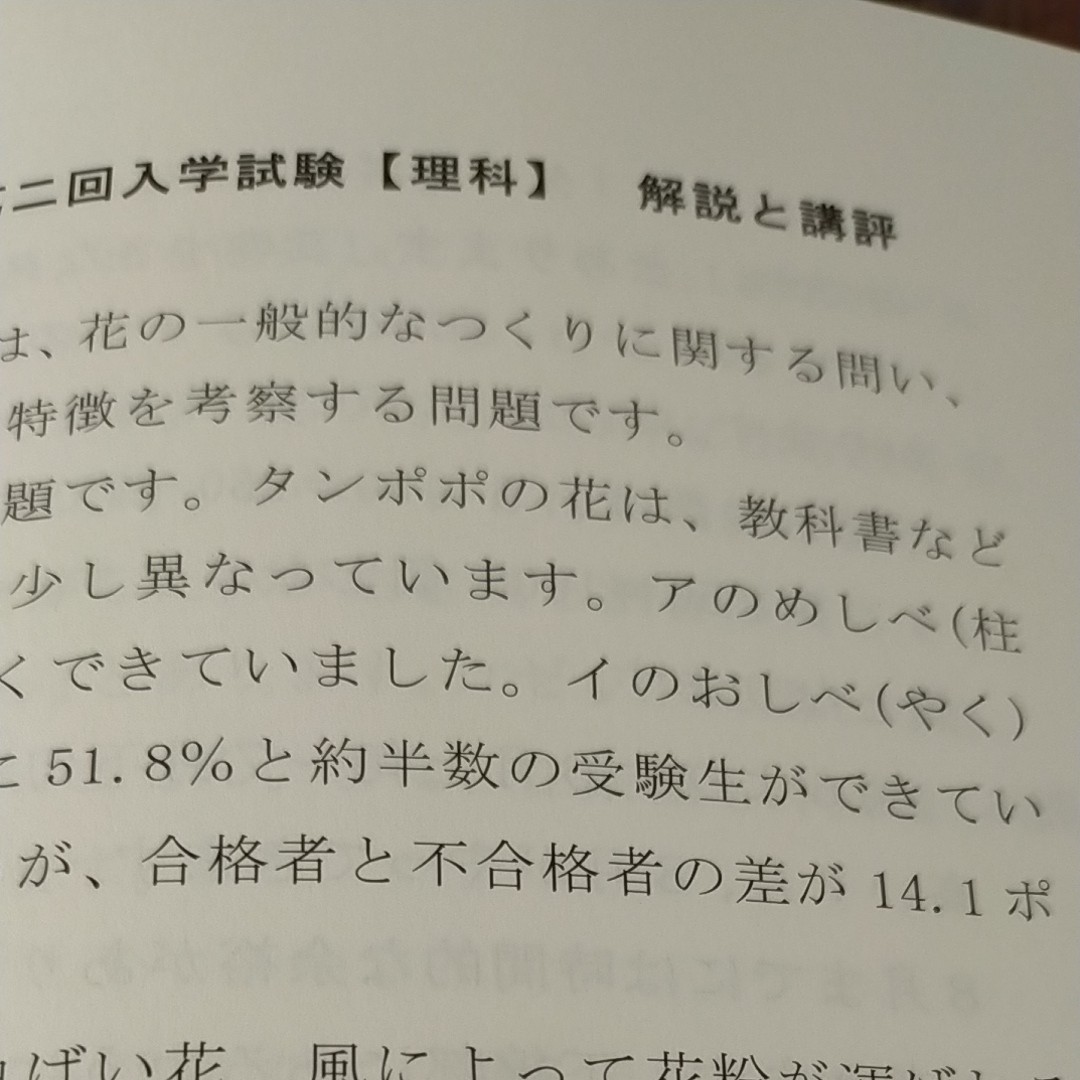 二回入学試験【理科】 解説と講評
は、花の一般的なつくりに関する問い、
特徴を考察する問題です。
題です。タンポポの花は、教科書など
少し異なっています。アのめしべ(柱
くできていました。イのおしべ(やく)
に51.8%と約半数の受験生ができてい
が、合格者と不合格者の差が14.1ポ
ばい花 風によって花粉が運ばれ